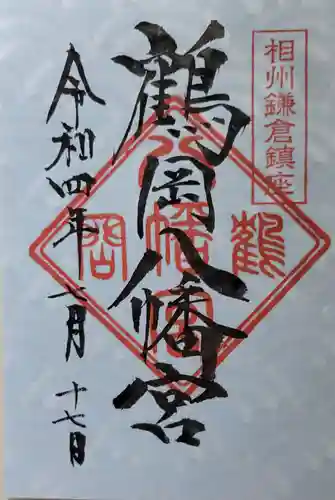 相州鎌倉鎮座
鶴岡八幡宮
鶴岡
八幡宮
令和四年二月十七日